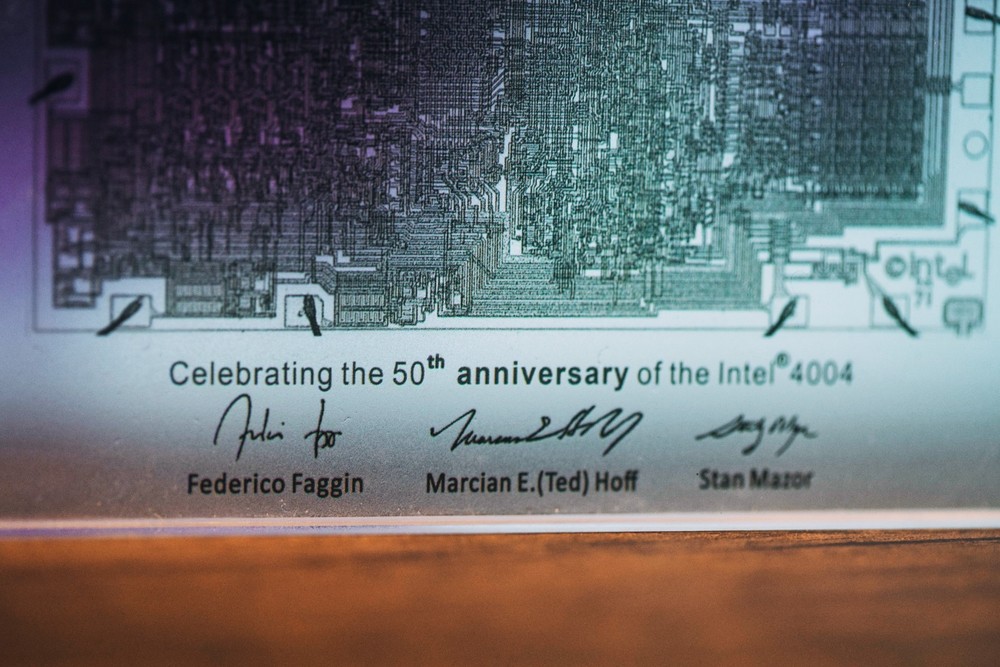 ©intel
'71
Celebrating the 50th anniversary of the Intel®4004
Federico Faggin
Marcian E.(Ted) Hoff
Stan Mazor